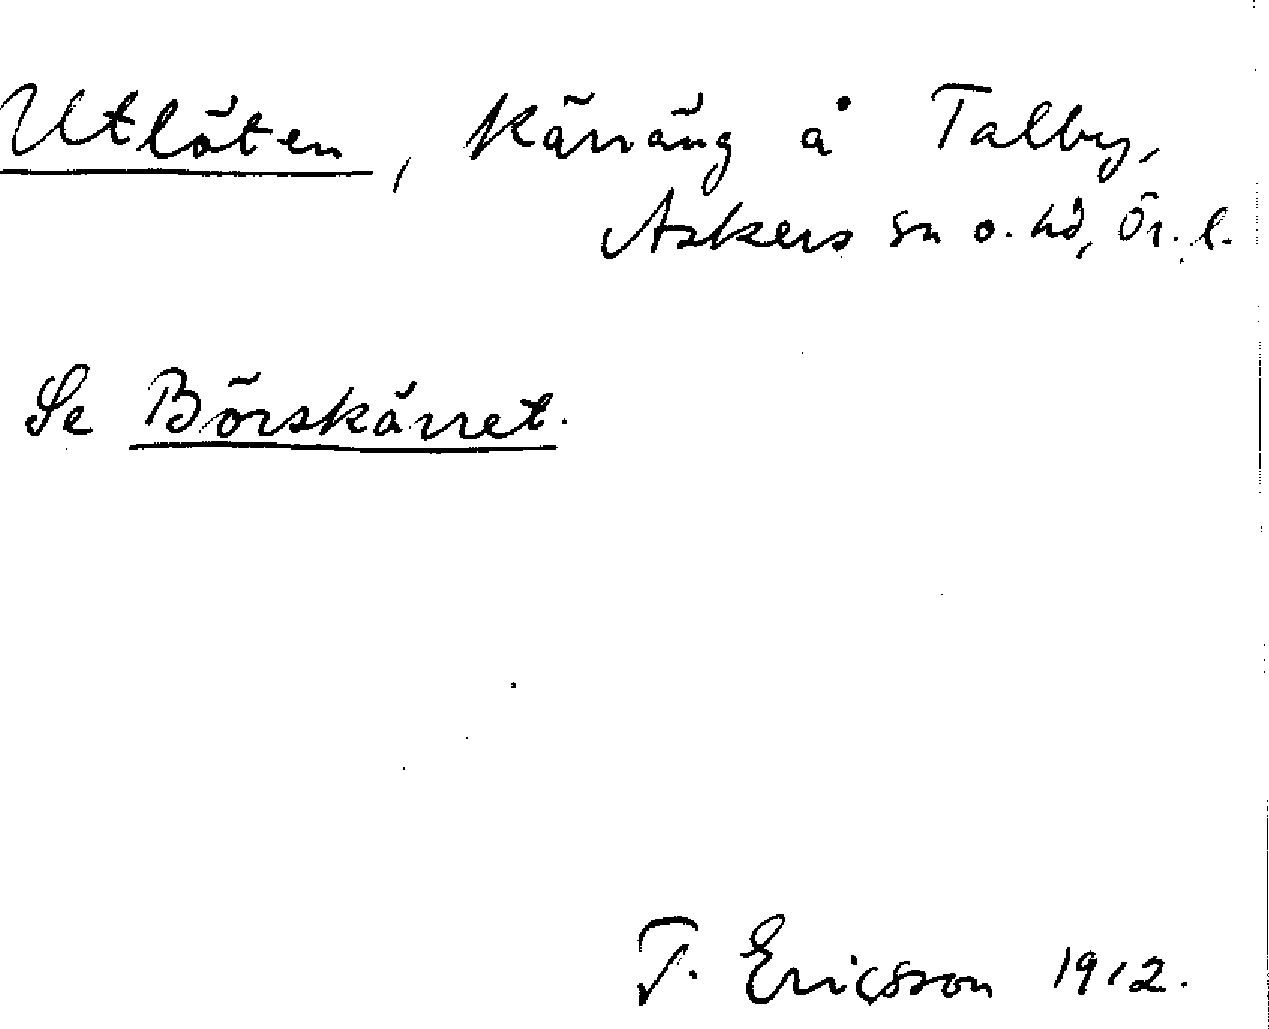 Utlöten, Kärräng å Talby,
Askers sn o. hd, Ör. l.
Se Börskärret.
T. Ericsson 1912.